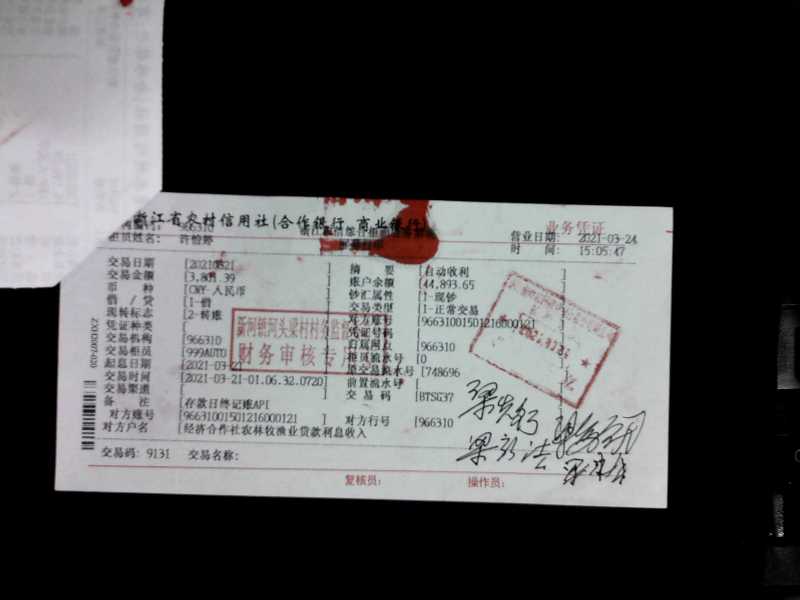 浙江省农村信用社(合作银行 商业银行)
业务凭证
966310
营业日期: 2021-03-24
柜员姓名: 许怡婷
时 间: 15:05:47
交易日期 [20210321
摘 要 [自动收利
交易金额 [3,801.39
账户余额 [44,893.65
币 种 [CNY-人民币
钞汇属性 [1-现钞
借 / 贷 [1-借
交易类型 [1-正常交易
现转标志 [2-转账
对方账号 [96631001501216000121
凭证种类 [
凭证号码 [
交易机构 [966310
966310
交易柜员 [999AUTO
柜员流水号 [0
起息日期 [2021-03-21
原交易流水号 [748696
交易时间 [2021-03-21-01.06.32.0720
前置流水号 [
交易渠道 [
交易码 [BTSG37
备 注 [存款日终记账API
对方账号 [96631001501216000121
对方行号 [966310
对方户名 [经济合作社农林牧渔业贷款利息收入
交易码: 9131 交易名称:
复核员: 操作员:
新河镇河头梁村村务监督
财务审核专用